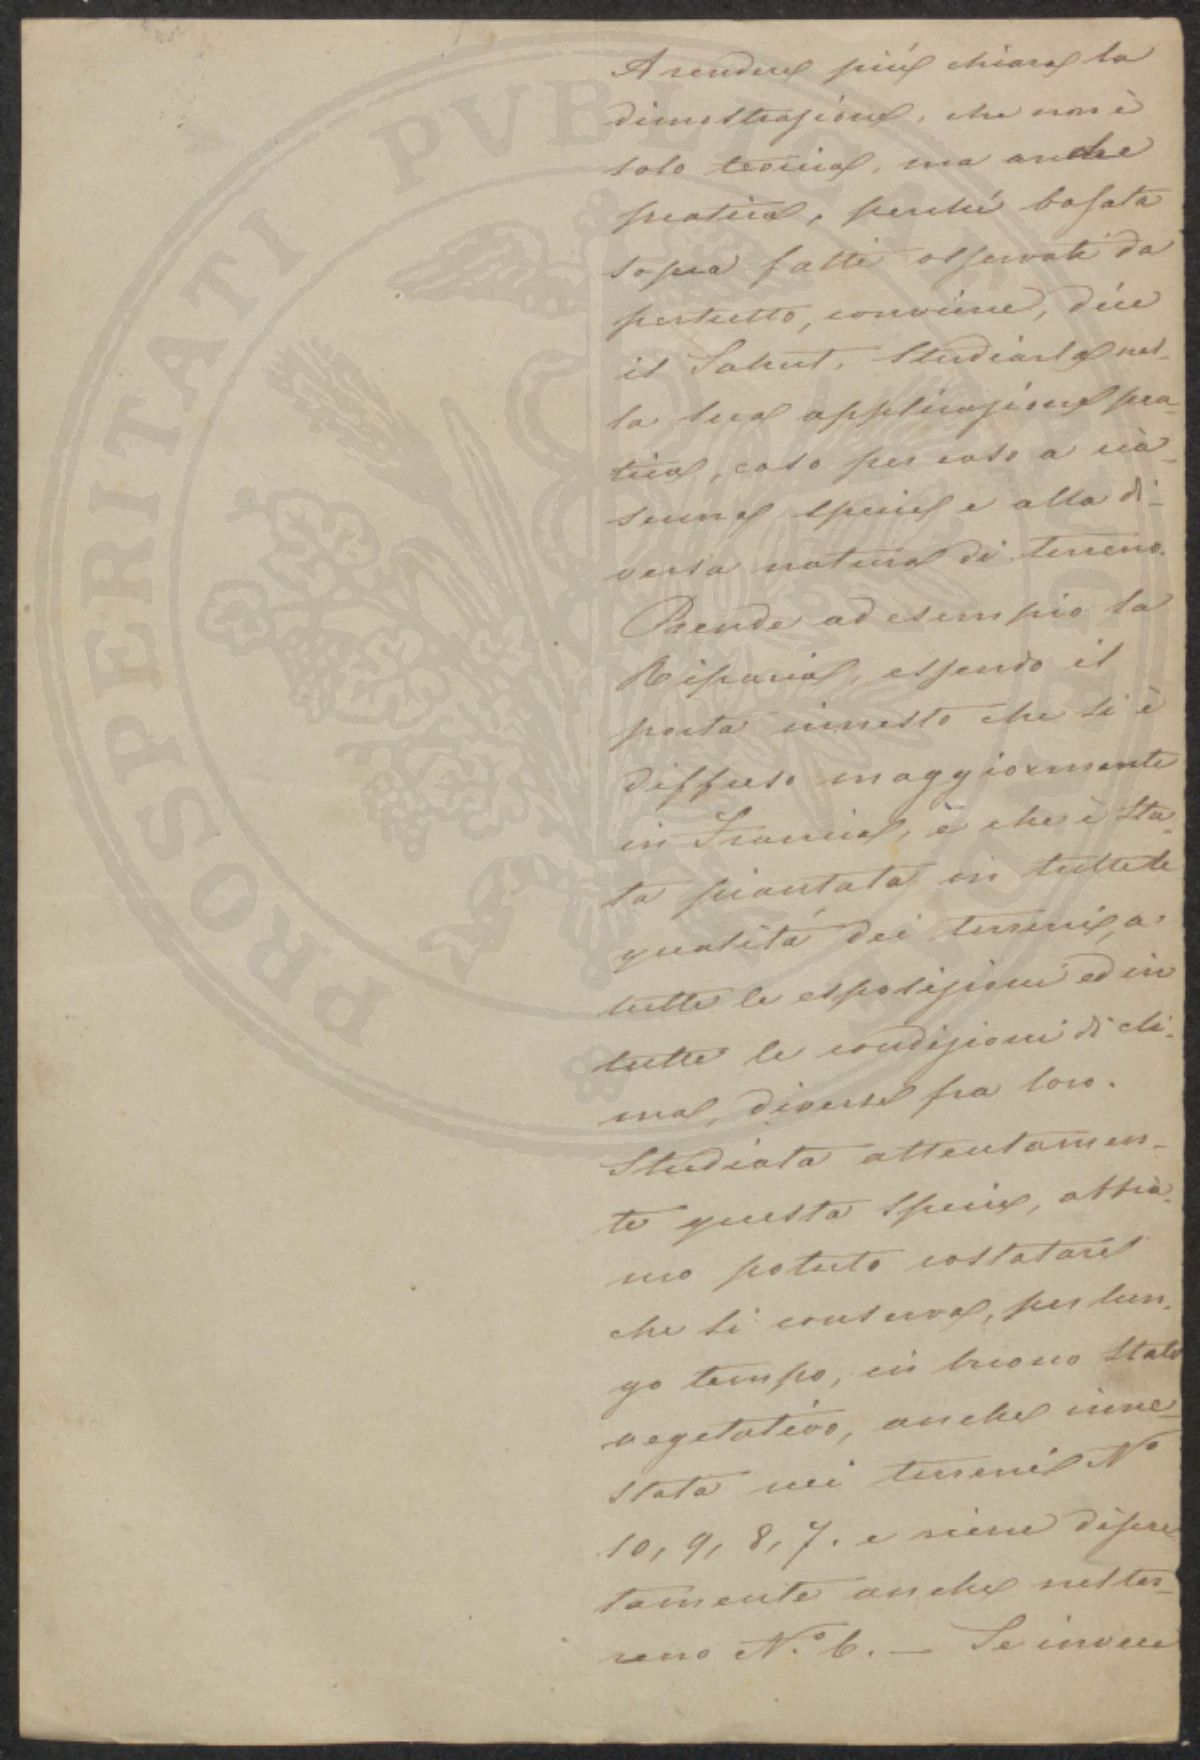 PROSPERITATI PVBLICAE
A rendere piú chiara la
dimostrazione, che non è
solo teorica, ma anche
pratica, perché basata
sopra fatti osservati da
pertutto, conviene, dice
il Sahut, studiarla nel-
la sua applicazione pra-
tica, caso per caso a cia-
scuna specie e alla di-
versa natura di terreno.
Prende ad esempio la
Riparia, essendo il
porta innesto che si è
diffuso maggiormente
in Francia, e che è sta-
ta piantata in tutte le
qualitá dei terreni, a
tutte le esposizioni ed in
tutte le condizioni di cli-
ma, diverse fra loro.
Studiata attentamen-
te questa specie, abbia-
mo potuto costatare
che si conserva, per lun-
go tempo, in buono stato
vegetativo, anche inne-
stata nei terreni No
10, 9, 8, 7. e viene discre
tamente anche nel ter-
reno No. 6. — Se invece